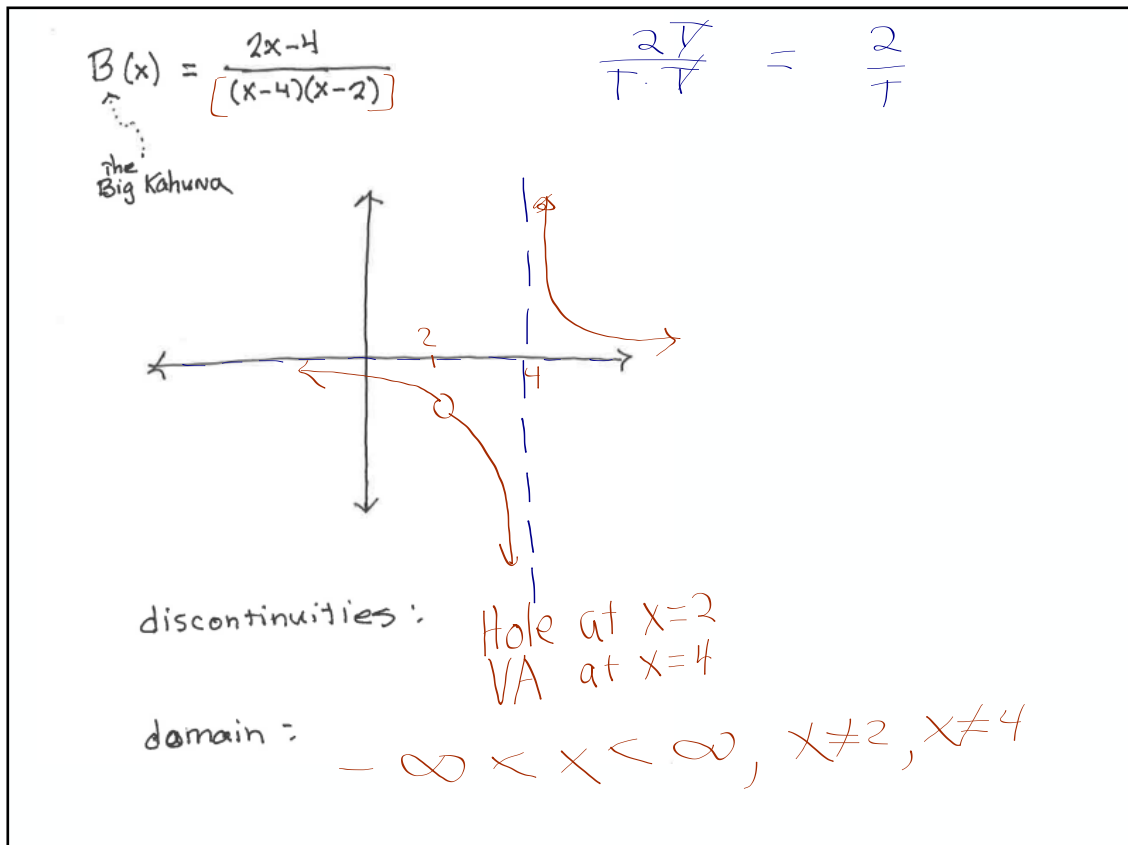 B(x) = 2x-4 / [(x-4)(x-2)]
2T / T·T = 2 / T
The
Big Kahuna
2
4
discontinuities:
Hole at x=2
VA at x=4
domain:
-∞ < x < ∞, x≠2, x≠4